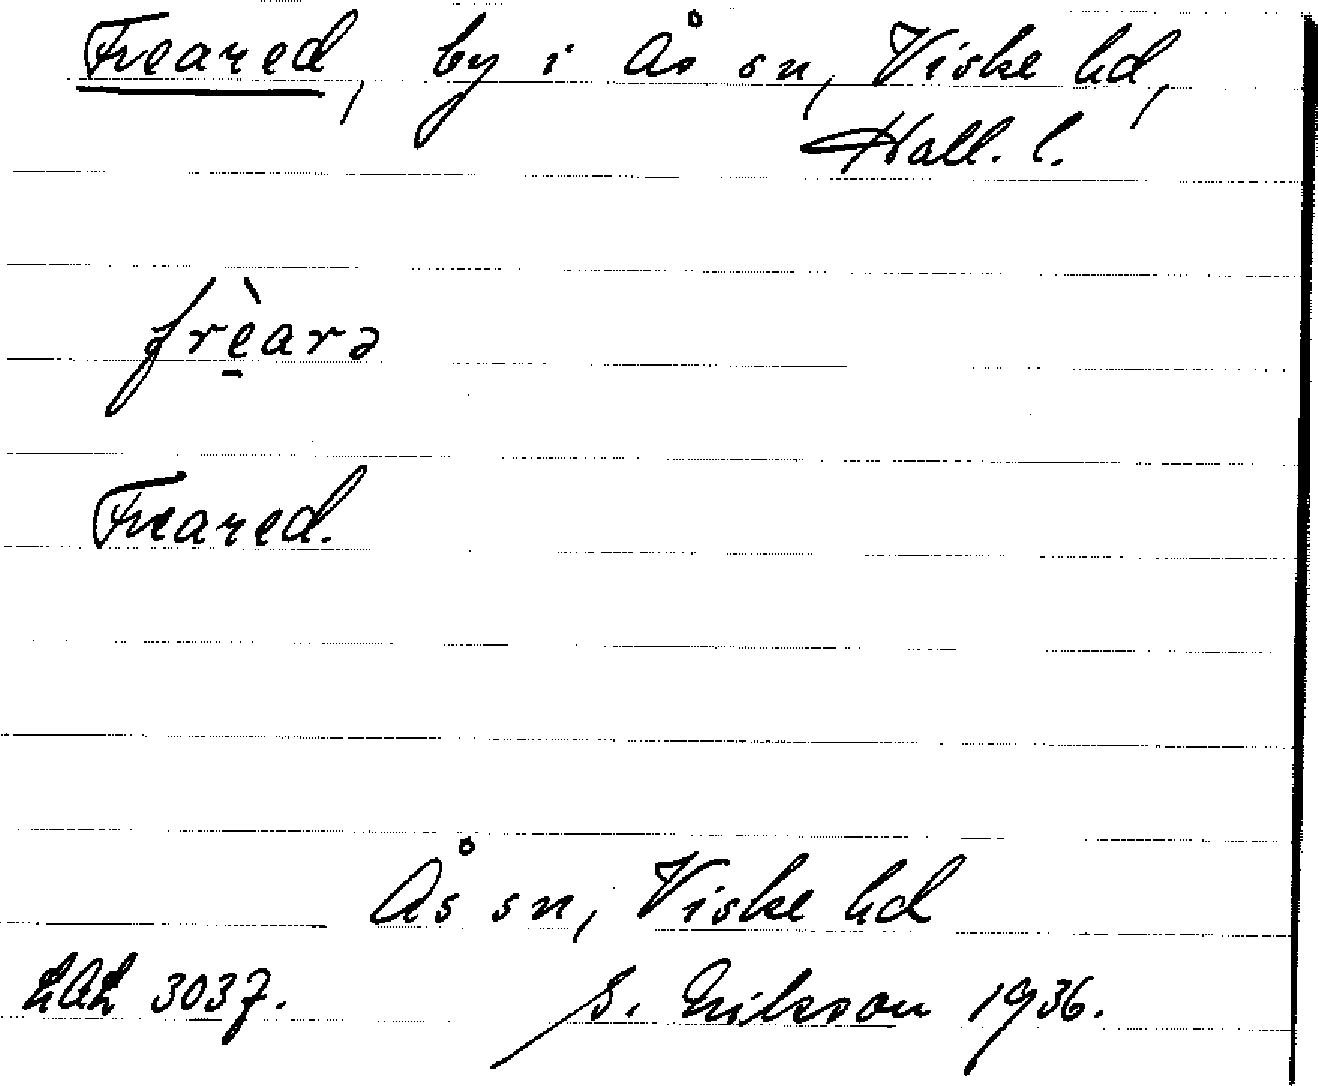 Freared, by i Ås sn, Viske hd,
Hall. l.
frèarə
Freared.
Ås sn, Viske hd
LAL 3037.
S. Erikson 1936.